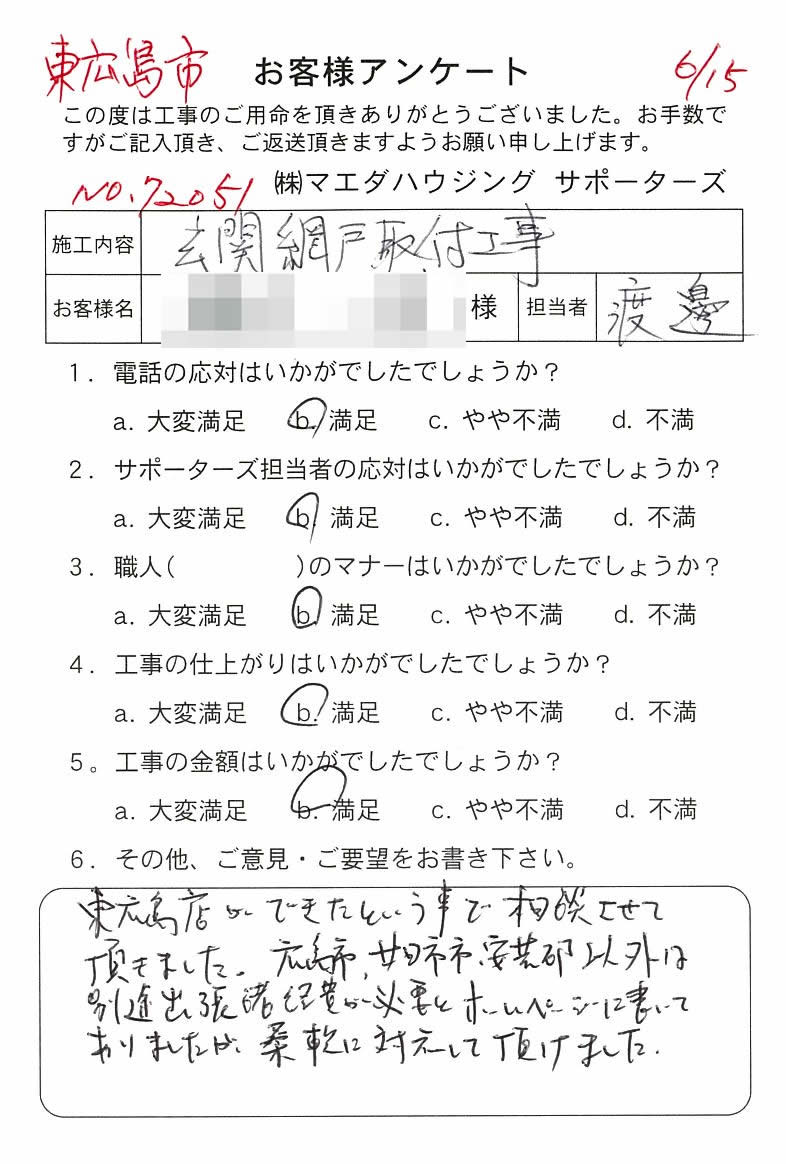 東広島市 お客様アンケート 6/15
この度は工事のご用命を頂きありがとうございました。お手数で
すがご記入頂き、ご返送頂きますようお願い申し上げます。
NO.72051 ㈱マエダハウジング サポーターズ
施工内容 玄関網戸取付工事
お客様名 様 担当者 渡邊
1. 電話の応対はいかがでしたでしょうか？
a. 大変満足 b. 満足 c. やや不満 d. 不満
2. サポーターズ担当者の応対はいかがでしたでしょうか？
a. 大変満足 b. 満足 c. やや不満 d. 不満
3. 職人( )のマナーはいかがでしたでしょうか？
a. 大変満足 b. 満足 c. やや不満 d. 不満
4. 工事の仕上がりはいかがでしたでしょうか？
a. 大変満足 b. 満足 c. やや不満 d. 不満
5。工事の金額はいかがでしたでしょうか？
a. 大変満足 b. 満足 c. やや不満 d. 不満
6. その他、ご意見・ご要望をお書き下さい。
東広島店ができたという事で相談させて
頂きました。広島市,廿日市市,安芸郡以外は
別途出張諸経費が必要とホームページに書いて
ありましたが、柔軟に対応して頂けました.